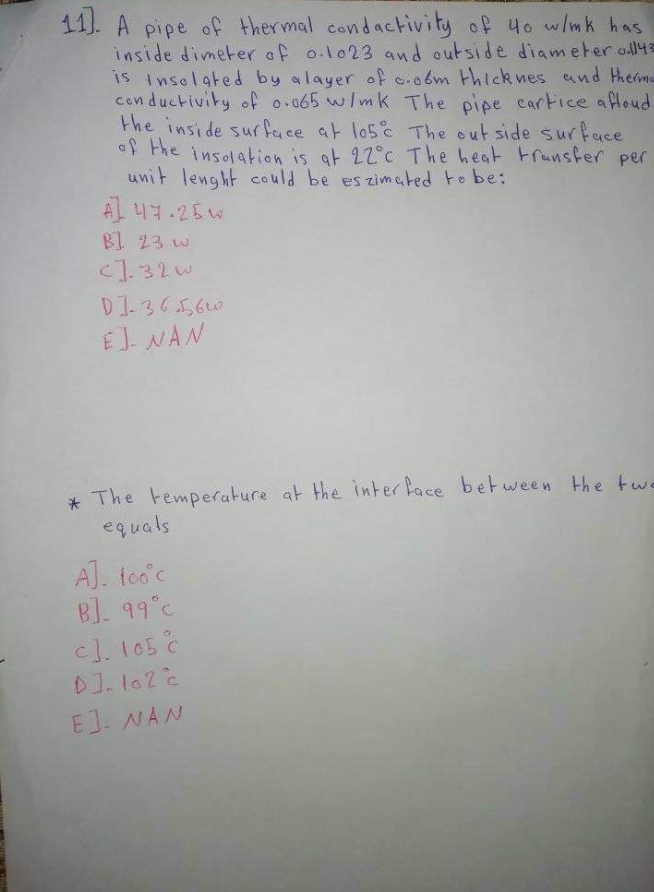 11]. A pipe of thermal condactivity of 40 w/mk has
inside dimeter of 0.1023 and outside diameter
is insolated by alayer of 0.06m thicknes and
conductivity of 0.065 w/mk The pipe cartice afloud
the inside surface at 105°c The out side surface
of the insolation is at 22°c The heat transfer per
unit lenght could be eszimated to be:
A]. 47.25w
B]. 23 w
C]. 32 w
D]. 36.56w
E]. NAN
* The temperature at the interface between the
equals
A]. 100°c
B]. 99°c
C]. 105°c
D]. 102°c
E]. NAN